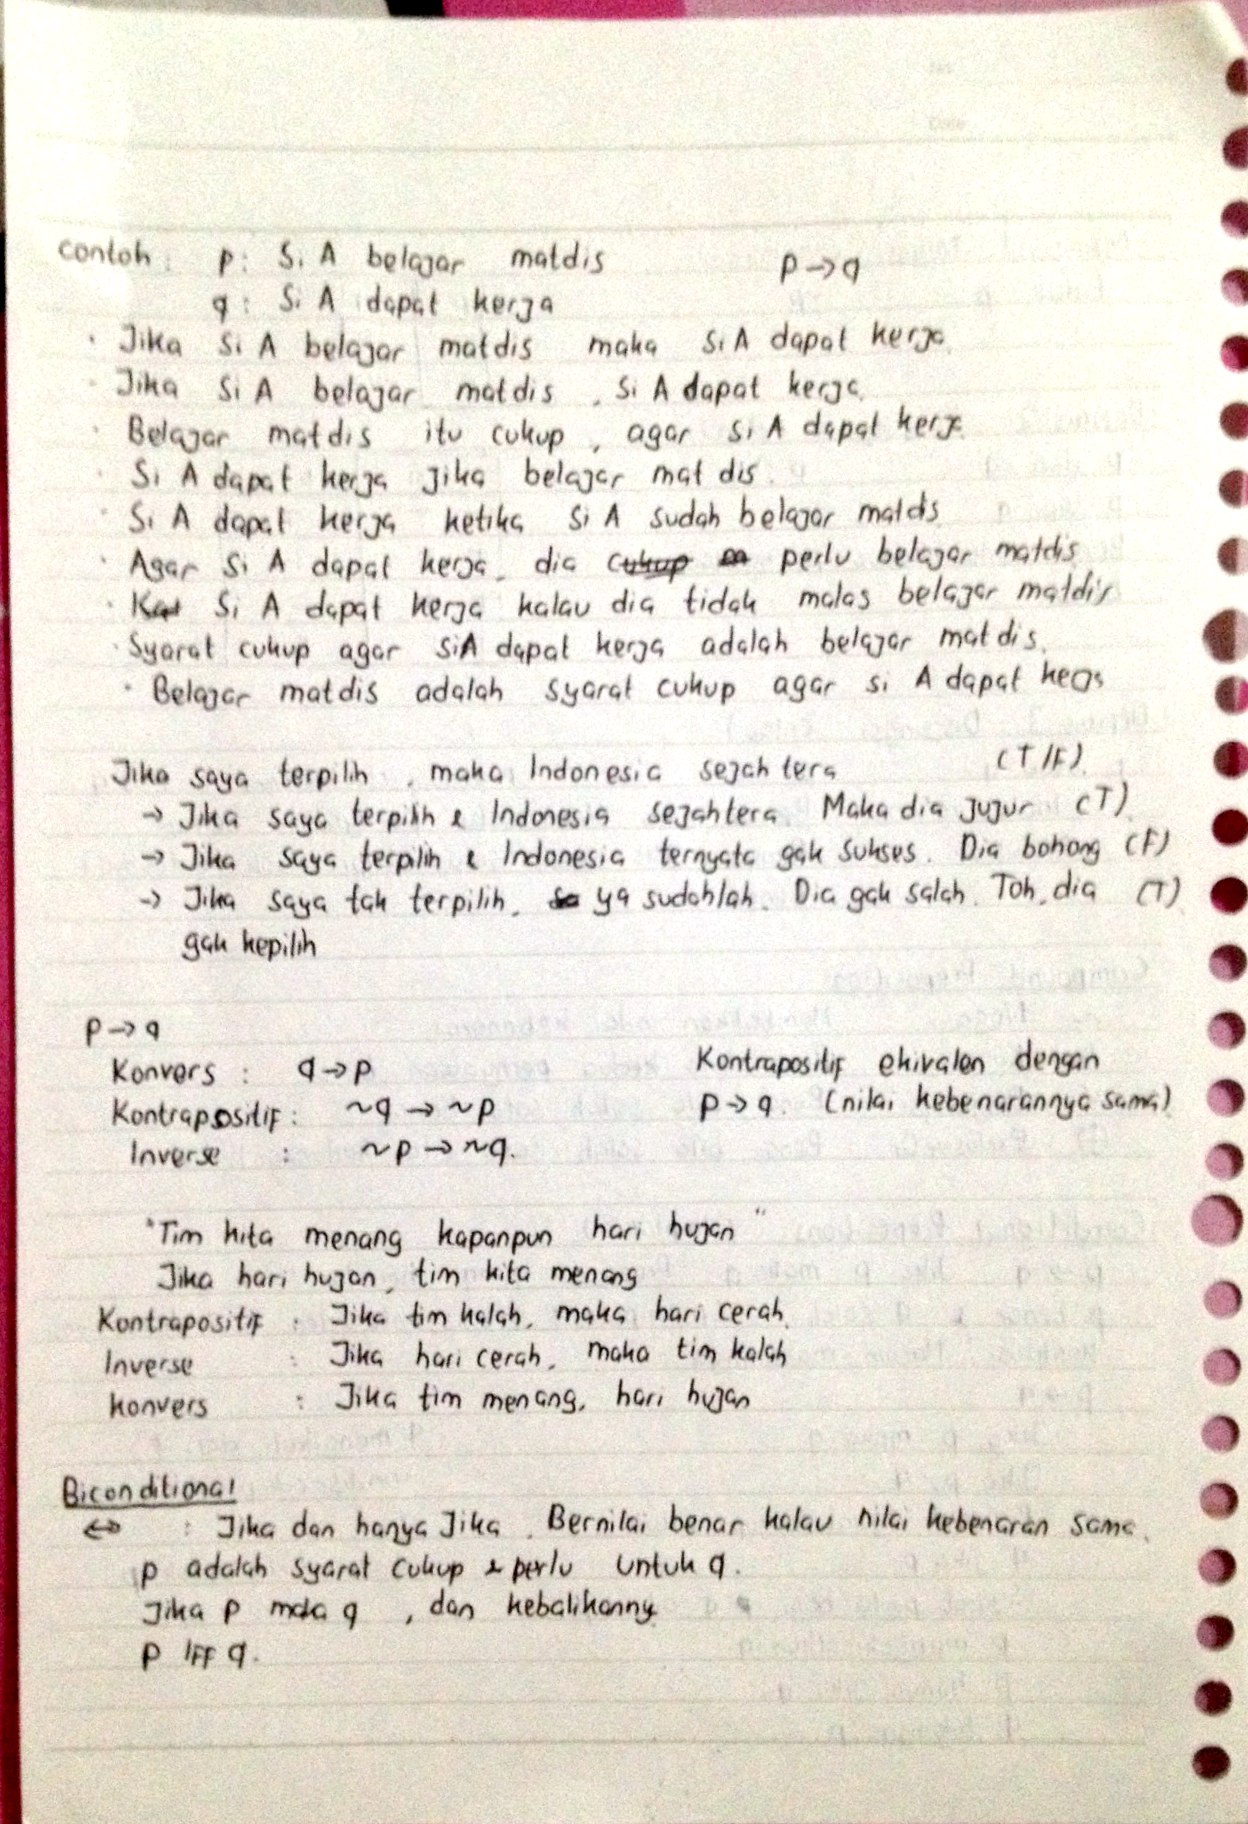 contoh : p : Si A belajar matdis p → q
q : Si A dapat kerja
· Jika Si A belajar matdis maka Si A dapat kerja.
· Jika Si A belajar matdis , Si A dapat kerja.
· Belajar matdis itu cukup , agar Si A dapat kerja.
· Si A dapat kerja jika belajar matdis.
· Si A dapat kerja ketika Si A sudah belajar matdis
· Agar Si A dapat kerja, dia perlu belajar matdis
· Si A dapat kerja kalau dia tidak malas belajar matdis
· Syarat cukup agar si A dapat kerja adalah belajar matdis.
· Belajar matdis adalah syarat cukup agar si A dapat kerja
Jika saya terpilih , maka Indonesia sejahtera (T/F).
→ Jika saya terpilih & Indonesia sejahtera. Maka dia jujur (T).
→ Jika saya terpilih & Indonesia ternyata gak sukses. Dia bohong (F)
→ Jika saya tak terpilih, ya sudahlah. Dia gak salah. Toh, dia (T)
gak kepilih
p → q
Konvers : q → p Kontrapositif ekivalen dengan
Kontrapositif : ~q → ~p p → q. (nilai kebenarannya sama)
Inverse : ~p → ~q.
"Tim kita menang kapanpun hari hujan"
Jika hari hujan, tim kita menang
Kontrapositif : Jika tim kalah, maka hari cerah.
Inverse : Jika hari cerah, maka tim kalah
konvers : Jika tim menang, hari hujan
Biconditional
↔ : Jika dan hanya Jika . Bernilai benar kalau nilai kebenaran sama.
p adalah syarat cukup & perlu untuk q.
Jika p maka q , dan kebalikannya
p IFF q.